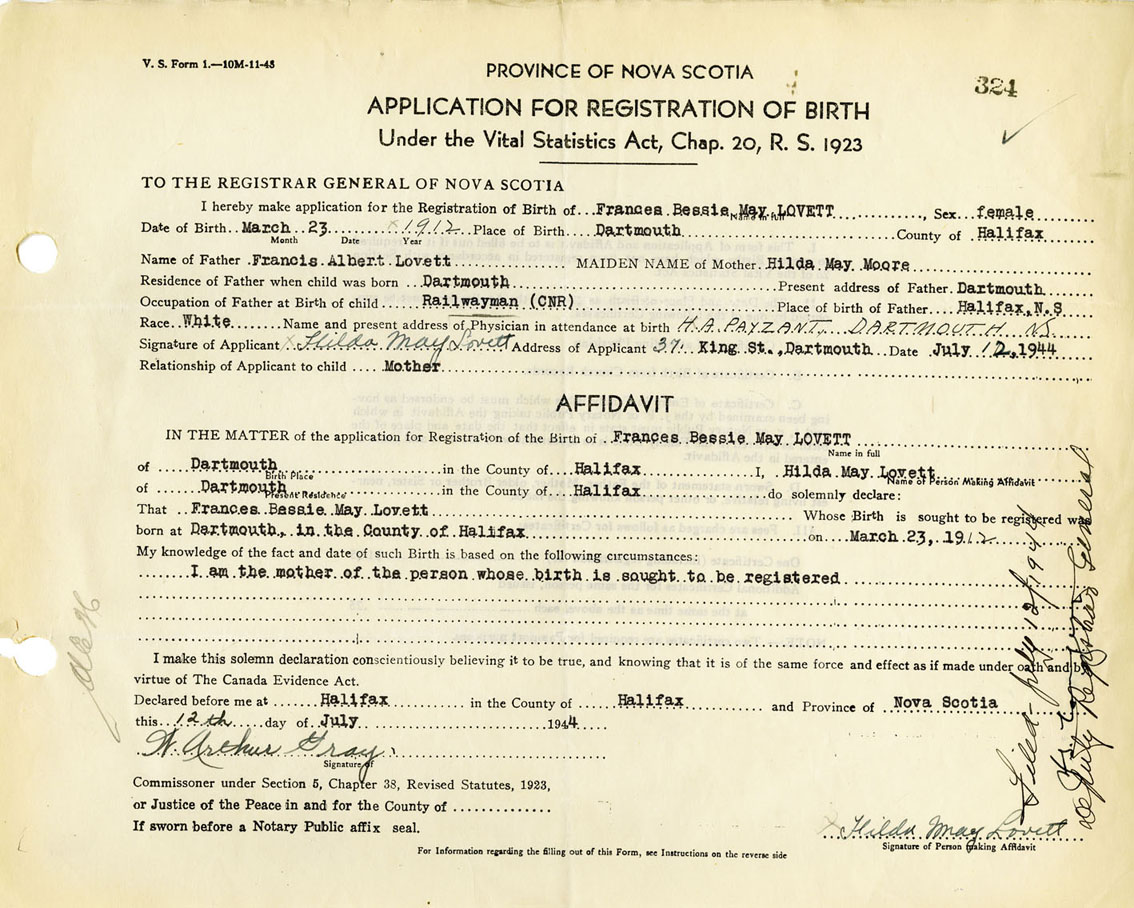 V. S. Form 1.—10M-11-43
PROVINCE OF NOVA SCOTIA
324
APPLICATION FOR REGISTRATION OF BIRTH
Under the Vital Statistics Act, Chap. 20, R. S. 1923
TO THE REGISTRAR GENERAL OF NOVA SCOTIA
I hereby make application for the Registration of Birth of Frances Bessie May LOVETT, Sex female
Name in full
Date of Birth March 23 1912 Place of Birth Dartmouth County of Halifax
Month Date Year
Name of Father Francis Albert Lovett MAIDEN NAME of Mother Hilda May Moore
Residence of Father when child was born Dartmouth Present address of Father Dartmouth
Occupation of Father at Birth of child Railwayman (CNR) Place of birth of Father Halifax, N.S
Race White Name and present address of Physician in attendance at birth H.A. PAYZANT, DARTMOUTH NS
Signature of Applicant x Hilda May Lovett Address of Applicant 37 King St., Dartmouth Date July 12, 1944
Relationship of Applicant to child Mother
AFFIDAVIT
IN THE MATTER of the application for Registration of the Birth of Frances Bessie May LOVETT
Name in full
of Dartmouth in the County of Halifax I, Hilda May Lovett
Birth Place Name of Person Making Affidavit
of Dartmouth in the County of Halifax do solemnly declare:
Present Residence
That Frances Bessie May Lovett Whose Birth is sought to be registered was
born at Dartmouth, in the County of Halifax on March 23, 1912
My knowledge of the fact and date of such Birth is based on the following circumstances:
I am the mother of the person whose birth is sought to be registered
I make this solemn declaration conscientiously believing it to be true, and knowing that it is of the same force and effect as if made under oath and by
virtue of The Canada Evidence Act.
Declared before me at Halifax in the County of Halifax and Province of Nova Scotia
this 12th day of July 1944
W. Arthur Gray
Signature of
Commissoner under Section 5, Chapter 38, Revised Statutes, 1923,
or Justice of the Peace in and for the County of
If sworn before a Notary Public affix seal.
x Hilda May Lovett
Signature of Person making Affidavit
For Information regarding the filling out of this Form, see Instructions on the reverse side
Filed - July 12/1944
Deputy Registrar General